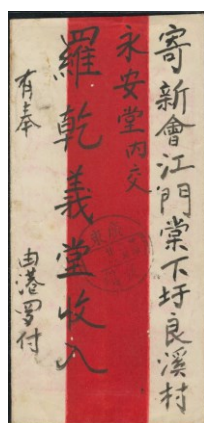 寄新會江門棠下圩良溪村
永安堂內交
羅乾義堂收入
有奉
由港羅付